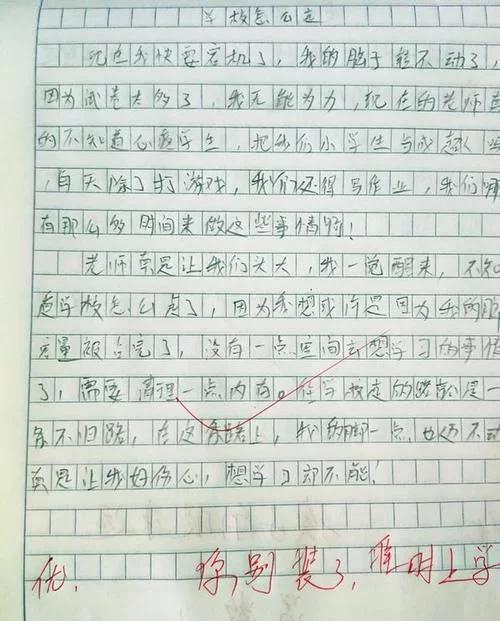 学校怎么走
现在我快要宕机了，我的脑子转不动了，
因为试卷太多了，我无能为力，现在的老师真
的不知道心疼学生，把我们小学生当成超人
，每天除了打游戏，我们还得写作业，我们哪
有那么多时间来做这些事情啊！
老师真是让我们头大，我一觉醒来，不知
道学校怎么走了，因为我想或许是因为我的脑
容量被占完了，没有一点空间去想学习的事情
了，需要清理一点内存。在学校走的路就是一
条不归路，在这条路上，我的脚一点也迈不动
真是让我好伤心，想学习却不能！
优.
你别装了，准时上学